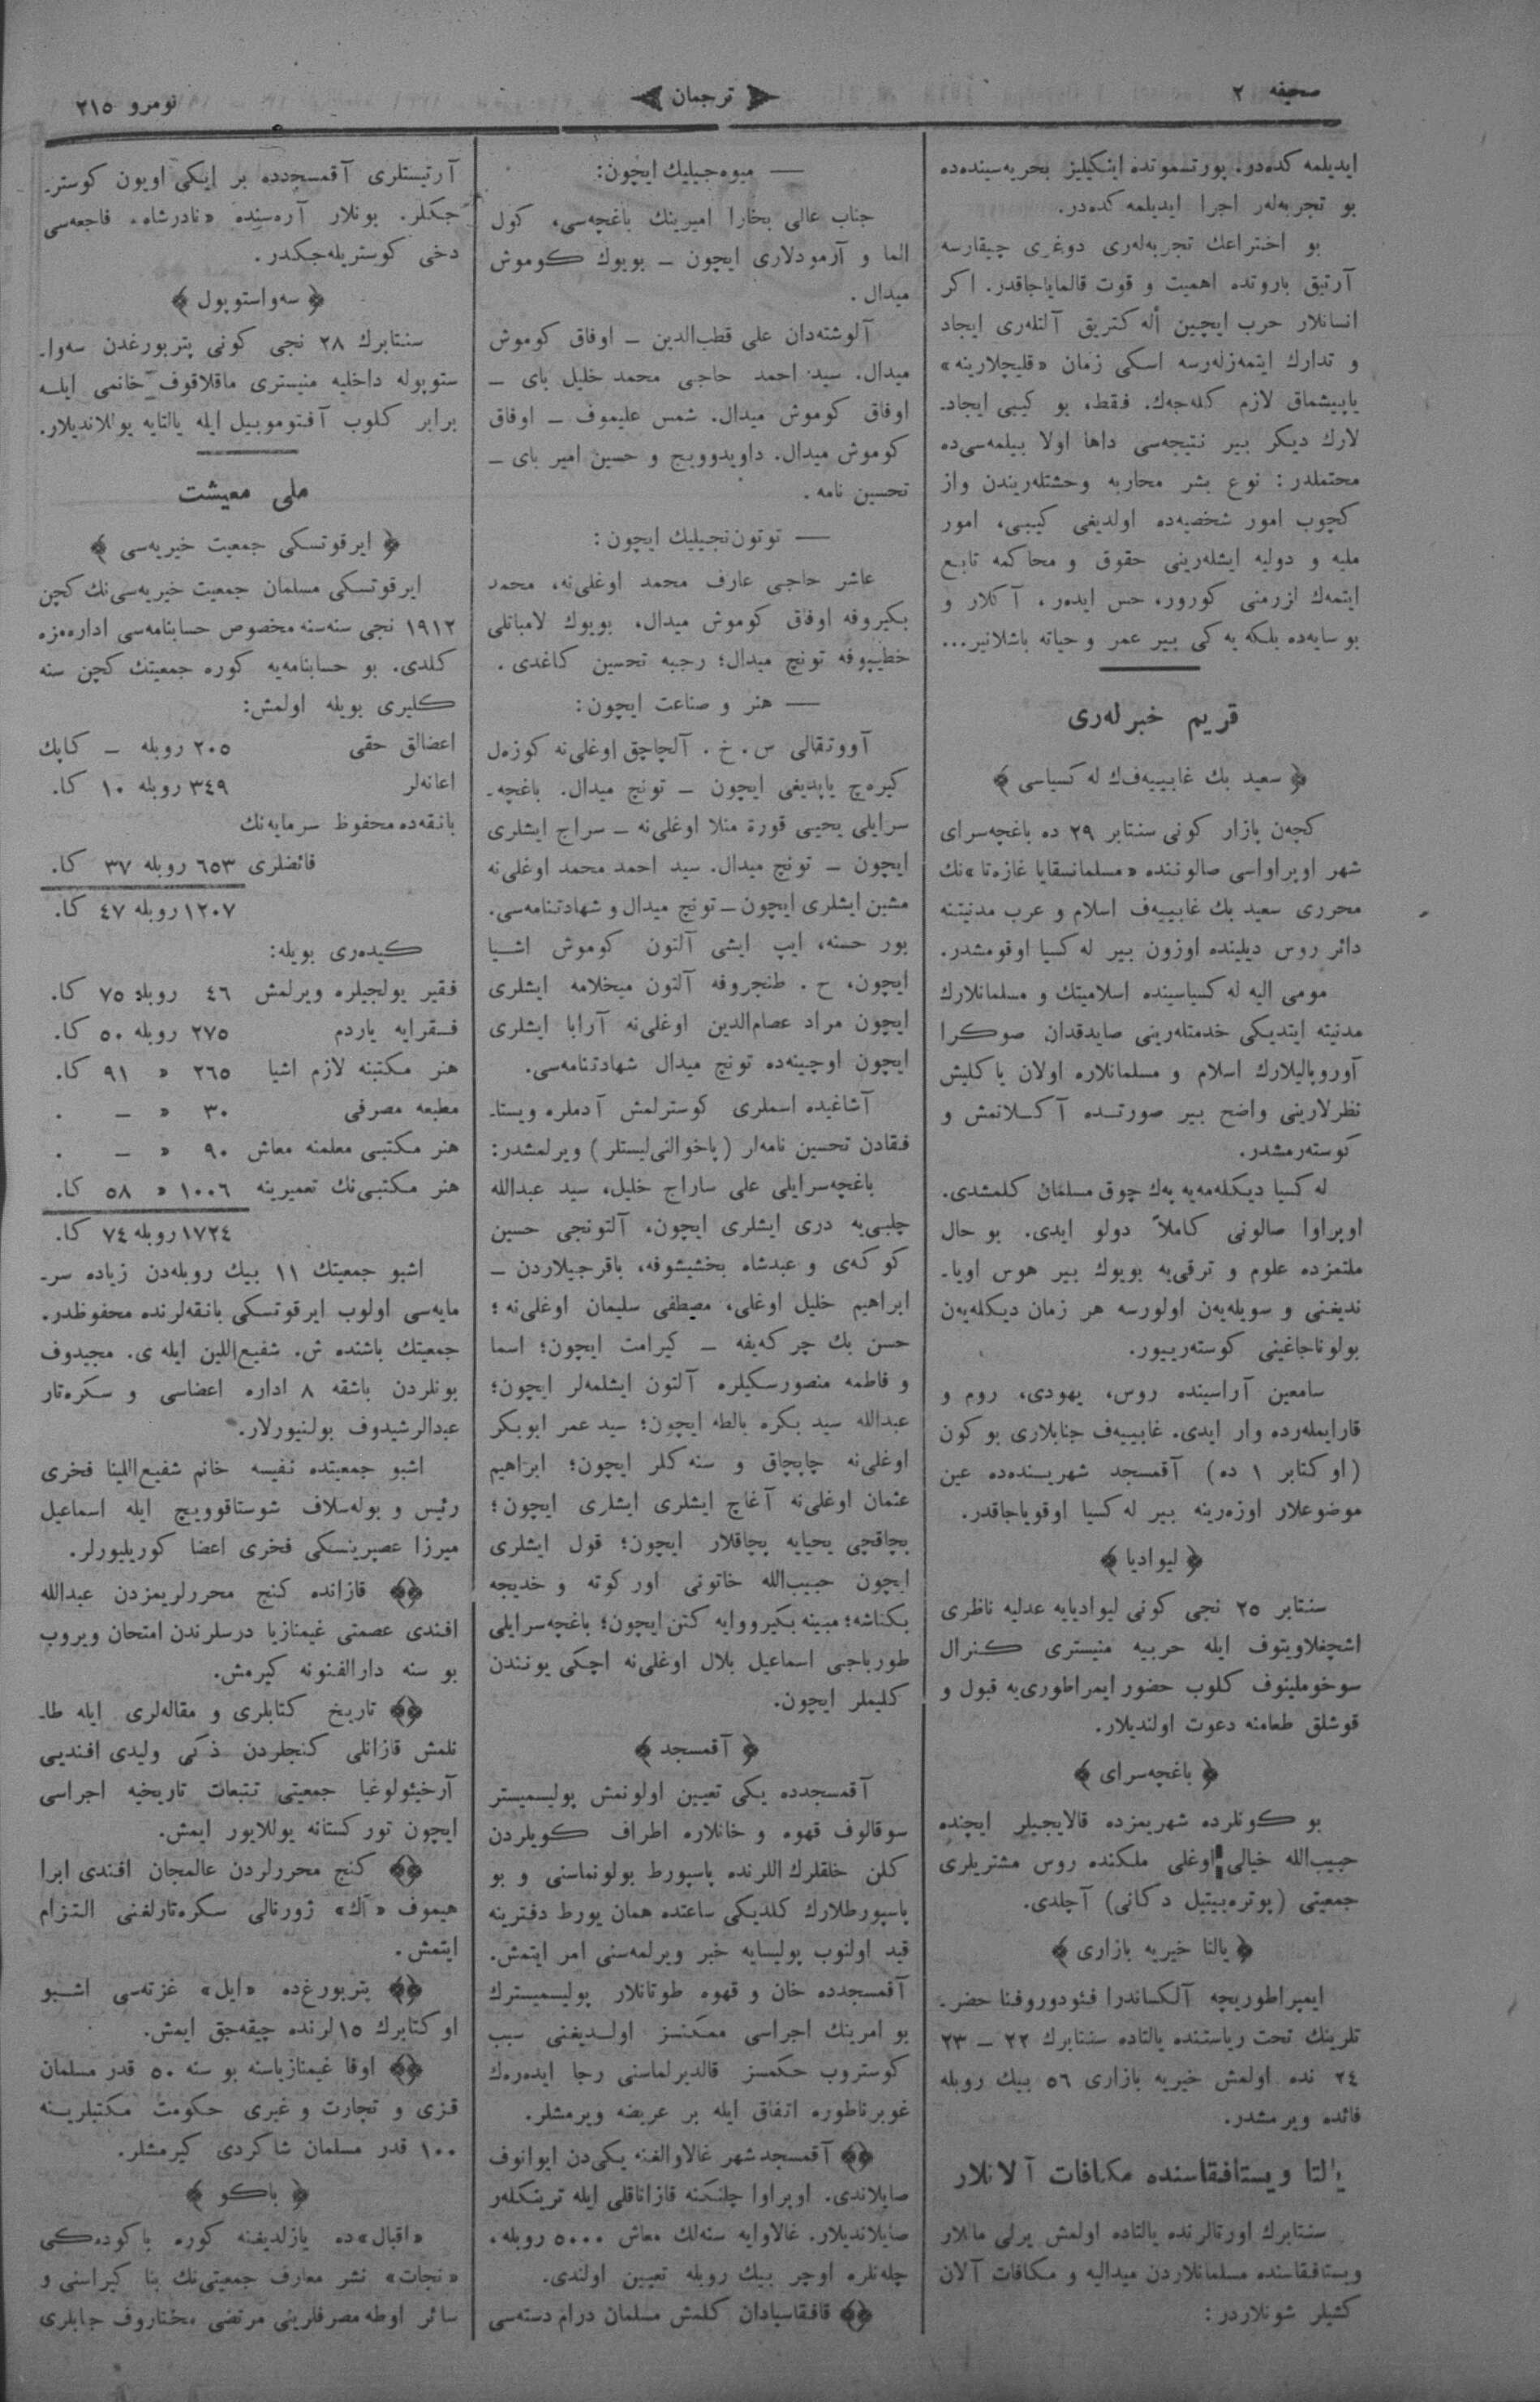 صحیفه ٢
ترجمان
نومرو ٢١٥
ایدیلمه كده‌در. پورتسموتده اینكیلیز بحریه‌سینده‌ده
بو تجربه‌لر اجرا ایدیلمه كده‌در.
بو اختراعك تجربه‌له‌ری دوغری چیقارسه
آرتیق باروتده اهمیت و قوت قالمایاجاقدر. اكر
انسانلار حرب ایچین أله كتریق آلتله‌ری ایجاد
و تدارك ایتمه‌زله‌رسه اسكی زمان «قلیچلارینه»
یاپیشماق لازم كله‌جه‌ك. فقط، بو كیبی ایجاد-
لارك دیكر بیر نتیجه‌سی داها اولا بیلمه‌سی‌ده
محتملدر: نوع بشر محاربه وحشتله‌ریندن واز
كچوب امور شخصیه‌ده اولدیغی كیبی، امور
ملیه و دولیه ایشله‌رینی حقوق و محاكمه تابع
ایتمه‌ك لزرمنی كورور، حس ایده‌ر، آ كلار و
بو سایه‌ده بلكه یه كی بیر عمر و حیاته باشلانیر...
قریم خبرله‌ری
﴿ سعید بك غابییه‌ف‌ك له كسیاسی ﴾
كچه‌ن پازار كونی سنتابر ٢٩ ده باغچه‌سرای
شهر اوپراواسی صالوننده «مسلمانسقایا غازه‌تا»نك
محرری سعید بك غابییه‌ف اسلام و عرب مدنیتنه
دائر روس دیلینده اوزون بیر له كسیا اوقومشدر.
مومی الیه له كسیاسینده اسلامیتك و مسلمانلارك
مدنیته ایتدیكی خدمتله‌رینی صایدقدان صوكرا
آوروپالیلارك اسلام و مسلمانلاره اولان یا كلیش
نظرلارینی واضح بیر صورتده آ كلانمش و
كوسته‌رمشدر.
له كسیا دیكله‌مه‌یه پەك چوق مسلمان كلمشدی.
اوپراوا صالونی كاملاً دولو ایدی. بو حال
ملتمزده علوم و ترقی‌یه بویوك بیر هوس اویا-
ندیغنی و سویله‌یه‌ن اولورسه هر زمان دیكله‌یه‌ن
بولوناجاغینی كوسته‌رییور.
سامعین آراسینده روس، یهودی، روم و
قارایمله‌رده وار ایدی. غابییه‌ف جنابلاری بو كون
(اوكتابر ١ ده) آقمسجد شهرینده‌ده عین
موضوعلار اوزه‌رینه بیر له كسیا اوقویاجاقدر.
﴿ لیوادیا ﴾
سنتابر ٢٥ نجی كونی لیوادیایه عدلیه ناظری
اشچغلاویتوف ایله حربیه منیستری كنرال
سوخوملینوف كلوب حضور ایمراطوری‌یه قبول و
قوشلق طعامنه دعوت اولندیلار.
﴿ باغچه‌سرای ﴾
بو كونلرده شهریمزده قالایجیلر ایچنده
حبیب‌الله خیالی اوغلی ملكنده روس مشتریلری
جمعیتی (پوتره‌بیتیل دكانی) آچلدی.
﴿ یالتا خیریه بازاری ﴾
ایمپراطوریچه آلكساندرا فئودوروفنا حضر-
تلرینك تحت ریاستنده یالتاده سنتابرك ٢٢ – ٢٣
٢٤ نده اولمش خیریه بازاری ٥٦ بیك روبله
فائده ویرمشدر.
یالتا ویستافقاسنده مكافات آلانلار
سنتابرك اورتالرنده یالتاده اولمش یرلی ماللار
ویستافقاسنده مسلمانلاردن میدالیه و مكافات آلان
كشیلر شونلاردر:
— میوه‌جیلیك ایچون:
جناب عالی بخارا امیرینك باغچه‌سی، كول
الما و آرمودلاری ایچون – بویوك كوموش
میدال.
آلوشته‌دان علی قطب‌الدین – اوفاق كوموش
میدال. سید احمد حاجی محمد خلیل بای –
اوفاق كوموش میدال. شمس علیموف – اوفاق
كوموش میدال. داویدوویچ و حسین امیر بای –
تحسین نامه.
— توتون‌نجیلیك ایچون:
عاشر حاجی عارف محمد اوغلی‌نه، محمد
بكیروفه اوفاق كوموش میدال، بویوك لامباتلی
خطیپوفه تونج میدال؛ رجبه تحسین كاغدی.
— هنر و صناعت ایچون:
آووتقالی س. خ. آلچاچق اوغلی‌نه كوزه‌ل
كیره‌چ یاپدیغی ایچون – تونج میدال. باغچه-
سرایلی یحیی قورة منلا اوغلی‌نه – سراج ایشلری
ایچون – تونج میدال. سید احمد محمد اوغلی‌نه
مشین ایشلری ایچون – تونج میدال و شهادتنامه‌سی.
بور حسنه، ایپ ایشی آلتون كوموش اشیا
ایچون، ح. طنجروفه آلتون میخلامه ایشلری
ایچون مراد عصام‌الدین اوغلی‌نه آرابا ایشلری
ایچون اوچینه‌ده تونج میدال شهادتنامه‌سی.
آشاغیده اسملری كوسترلمش آدملره ویستا-
فقادن تحسین نامه‌لر (پاخوالنی‌لیستلر) ویرلمشدر:
باغچه‌سرایلی علی ساراج خلیل، سید عبدالله
چلبی‌یه دری ایشلری ایچون، آلتونجی حسین
كوكه‌ی و عبدشاه بخشیشوفه، باقرجیلاردن –
ابراهیم خلیل اوغلی، مصطفی سلیمان اوغلی‌نه؛
حسن بك چركه‌یفه – كیرامت ایچون؛ اسما
و فاطمه منصورسكیلره آلتون ایشلمه‌لر ایچون؛
عبدالله سید بكره بالطه ایچون؛ سید عمر ابوبكر
اوغلی‌نه چاپچاق و سنه كلر ایچون؛ ابراهیم
عثمان اوغلی‌نه آغاچ ایشلری ایشلری ایچون؛
پچاقچی یحیایه پچاقلار ایچون؛ قول ایشلری
ایچون حبیب‌الله خاتونی اوركوته و خدیجه
بكتاشه؛ مبینه بكیرووایه كتن ایچون؛ باغچه‌سرایلی
طورباجی اسماعیل بلال اوغلی‌نه اچكی یونندن
كلیملر ایچون.
﴿ آقمسجد ﴾
آقمسجدده یكی تعیین اولونمش پولیسمیستر
سوقالوف قهوه و خانلاره اطراف كویلردن
كلن خلقلرك اللرنده پاسپورط بولونماسنی و بو
پاسپورطلارك كلدیكی ساعتده همان یورط دفترینه
قید اولنوب پولیسایه خبر ویرلمه‌سنی امر ایتمش.
آقمسجدده خان و قهوه طوتانلار پولیسمیسترك
بو امرینك اجراسی ممكنسز اولدیغنی سبب
كوستروب حكمسز قالدیرلماسنی رجا ایده‌ره‌ك
غوبرناطوره اتفاق ایله بر عریضه ویرمشلر.
﴿﴾ آقمسجد شهر غالاوالغنه یكی‌دن ایوانوف
صایلاندی. اوپراوا چلنكنه قازاناقلی ایله ترینكلەر
صایلاندیلار. غالاوایه سنه‌لك معاش ٥٠٠٠ روبله،
چله‌نلره اوچر بیك روبله تعیین اولندی.
﴿﴾ قافقاسیادان كلمش مسلمان درام دسته‌سی
آرتیستلری آقمسجدده بر ایكی اویون كوستر-
جكلر. بونلار آره‌سنده «نادرشاه» فاجعه‌سی
دخی كوستریله‌جكدر.
﴿ سه‌واستوپول ﴾
سنتابرك ٢٨ نجی كونی پتربورغدن سه‌وا-
ستوپوله داخلیه منیستری ماقلاقوف خانمی ایله
برابر كلوب آفتوموبیل ایله یالتایه یوللاندیلار.
ملی معیشت
﴿ ایرقوتسكی جمعیت خیریه‌سی ﴾
ایرقوتسكی مسلمان جمعیت خیریه‌سی‌نك كچن
١٩١٢ نجی سنه‌سنه مخصوص حسابنامه‌سی اداره‌مزه
كلدی. بو حسابنامه‌یه كوره جمعیتك كچن سنه
كلیری بویله اولمش:
اعضالق حقی ٢٠٥ روبله – كاپك
اعانه‌لر ٣٤٩ روبله ١٠ كا.
بانقه‌ده محفوظ سرمایه‌نك
فائضلری ٦٥٣ روبله ٣٧ كا.
١٢٠٧ روبله ٤٧ كا.
كیده‌ری بویله:
فقیر یولجیلره ویرلمش ٤٦ روبله ٧٥ كا.
فقرایه یاردم ٢٧٥ روبله ٥٠ كا.
هنر مكتبنه لازم اشیا ٢٦٥ « ٩١ كا.
مطبعه مصرفی ٣٠ « – .
هنر مكتبی معلمنه معاش ٩٠ « – .
هنر مكتبی‌نك تعمیرینه ١٠٠٦ « ٥٨ كا.
١٧٢٤ روبله ٧٤ كا.
اشبو جمعیتك ١١ بیك روبله‌دن زیاده سر-
مایه‌سی اولوب ایرقوتسكی بانقه‌لرنده محفوظدر.
جمعیتك باشنده ش. شفیع‌اللین ایله ی. مجیدوف
بونلردن باشقه ٨ اداره اعضاسی و سكره‌تار
عبدالرشیدوف بولنیورلار.
اشبو جمعیتده نفیسه خانم شفیع‌اللینا فخری
رئیس و بوله‌سلاف شوستاقوویچ ایله اسماعیل
میرزا عصپرینسكی فخری اعضا كوریلیورلر.
﴿﴾ قازانده كنج محررلریمزدن عبدالله
افندی عصمتی غیمنازیا درسلرندن امتحان ویروب
بو سنه دارالفنونه كیرمش.
﴿﴾ تاریخ كتابلری و مقاله‌لری ایله طا-
نلمش قازانلی كنجلردن ذكی ولیدی افندیی
آرخیئولوغیا جمعیتی تتبعات تاریخیه اجراسی
ایچون توركستانه یوللایور ایمش.
﴿﴾ كنج محررلردن عالمجان افندی ابرا
هیموف «آڭ» ژورنالی سكره‌تارلغنی التزام
ایتمش.
﴿﴾ پتربورغ‌ده «ایل» غزته‌سی اشبو
اوكتابرك ١٥لرنده چیقه‌جق ایمش.
﴿﴾ اوفا غیمنازیاسنه بو سنه ٥٠ قدر مسلمان
قزی و تجارت و غیری حكومت مكتبلرینه
١٠٠ قدر مسلمان شاكردی كیرمشلر.
﴿ باكو ﴾
«اقبال»ده یازلدیغنه كوره باكوده‌كی
«نجات» نشر معارف جمعیتی‌نك بنا كیراسنی و
سائر اوطه مصرفلرینی مرتضی مختاروف جابلری